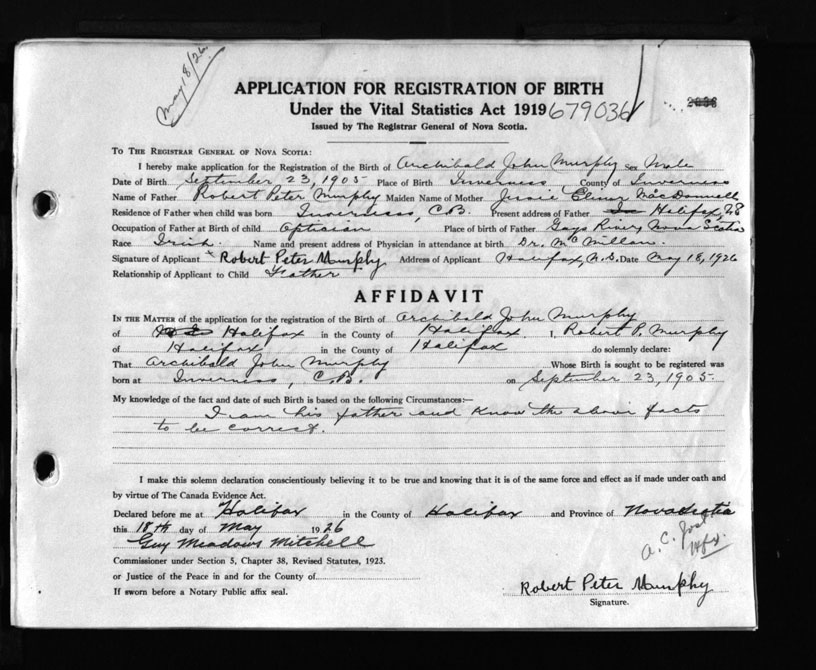 May 18/26
APPLICATION FOR REGISTRATION OF BIRTH
Under the Vital Statistics Act 1919 679036
Issued by The Registrar General of Nova Scotia.
TO THE REGISTRAR GENERAL OF NOVA SCOTIA:
I hereby make application for the Registration of the Birth of Archibald John Murphy Sex Male
Date of Birth September 23, 1905 Place of Birth Inverness County of Inverness
Name of Father Robert Peter Murphy Maiden Name of Mother Jessie Elinor MacDonnell
Residence of Father when child was born Inverness, C.B. Present address of Father Halifax, N.S
Occupation of Father at Birth of child Optician Place of birth of Father Gays River, Nova Scotia
Race Irish. Name and present address of Physician in attendance at birth Dr. McMillan.
Signature of Applicant Robert Peter Murphy. Address of Applicant Halifax, N.S. Date May 18, 1926
Relationship of Applicant to Child Father
AFFIDAVIT
IN THE MATTER of the application for the registration of the Birth of Archibald John Murphy
of Halifax in the County of Halifax. I, Robert P. Murphy
of Halifax in the County of Halifax do solemnly declare:
That Archibald John Murphy Whose Birth is sought to be registered was
born at Inverness, C.B. on September 23, 1905.
My knowledge of the fact and date of such Birth is based on the following Circumstances:—
I am his father and know the above facts
to be correct.
I make this solemn declaration conscientiously believing it to be true and knowing that it is of the same force and effect as if made under oath and
by virtue of The Canada Evidence Act.
Declared before me at Halifax in the County of Halifax and Province of Nova Scotia
this 18th day of May 1926
Guy Meadows Mitchell
A. C. Jost
Commissioner under Section 5, Chapter 38, Revised Statutes, 1923.
or Justice of the Peace in and for the County of
If sworn before a Notary Public affix seal.
Robert Peter Murphy
Signature.